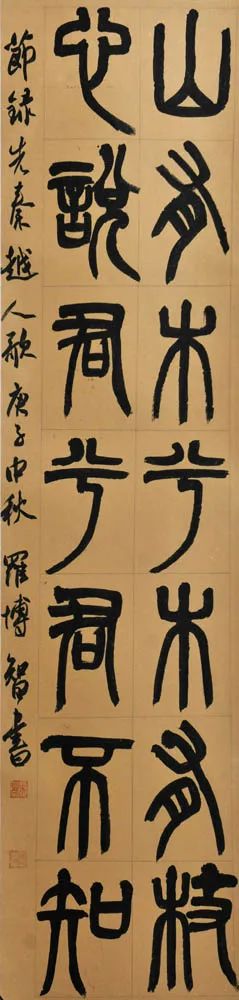 山有木兮木有枝
心說君兮君不知
節錄先秦越人歌庚子中秋羅博智書